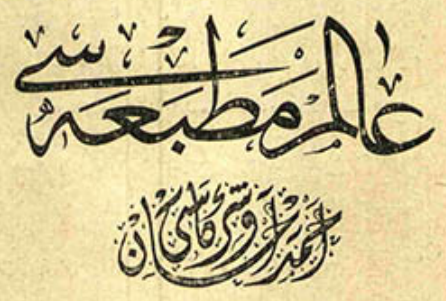 عالم مطبعه سی
احمد احسان وشركاسی